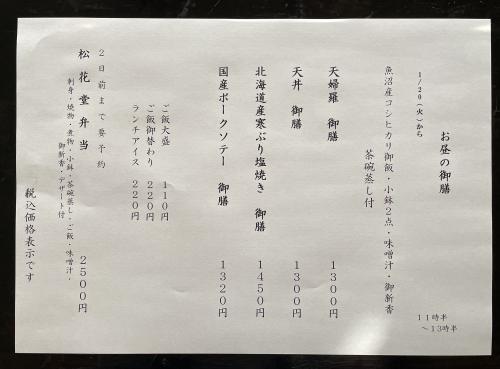 1/20(火)から
お昼の御膳
11時半
～13時半
魚沼産コシヒカリ御飯・小鉢2点・味噌汁・御新香
茶碗蒸し付
天婦羅 御膳 1300円
天丼 御膳 1300円
北海道産寒ぶり塩焼き 御膳 1450円
国産ポークソテー 御膳 1320円
ご飯大盛 110円
ご飯御替わり 220円
ランチアイス 220円
2日前まで要予約
松花堂弁当 2500円
刺身・焼物・煮物・小鉢・茶碗蒸し・ご飯・味噌汁・
御新香・デザート付
税込価格表示です